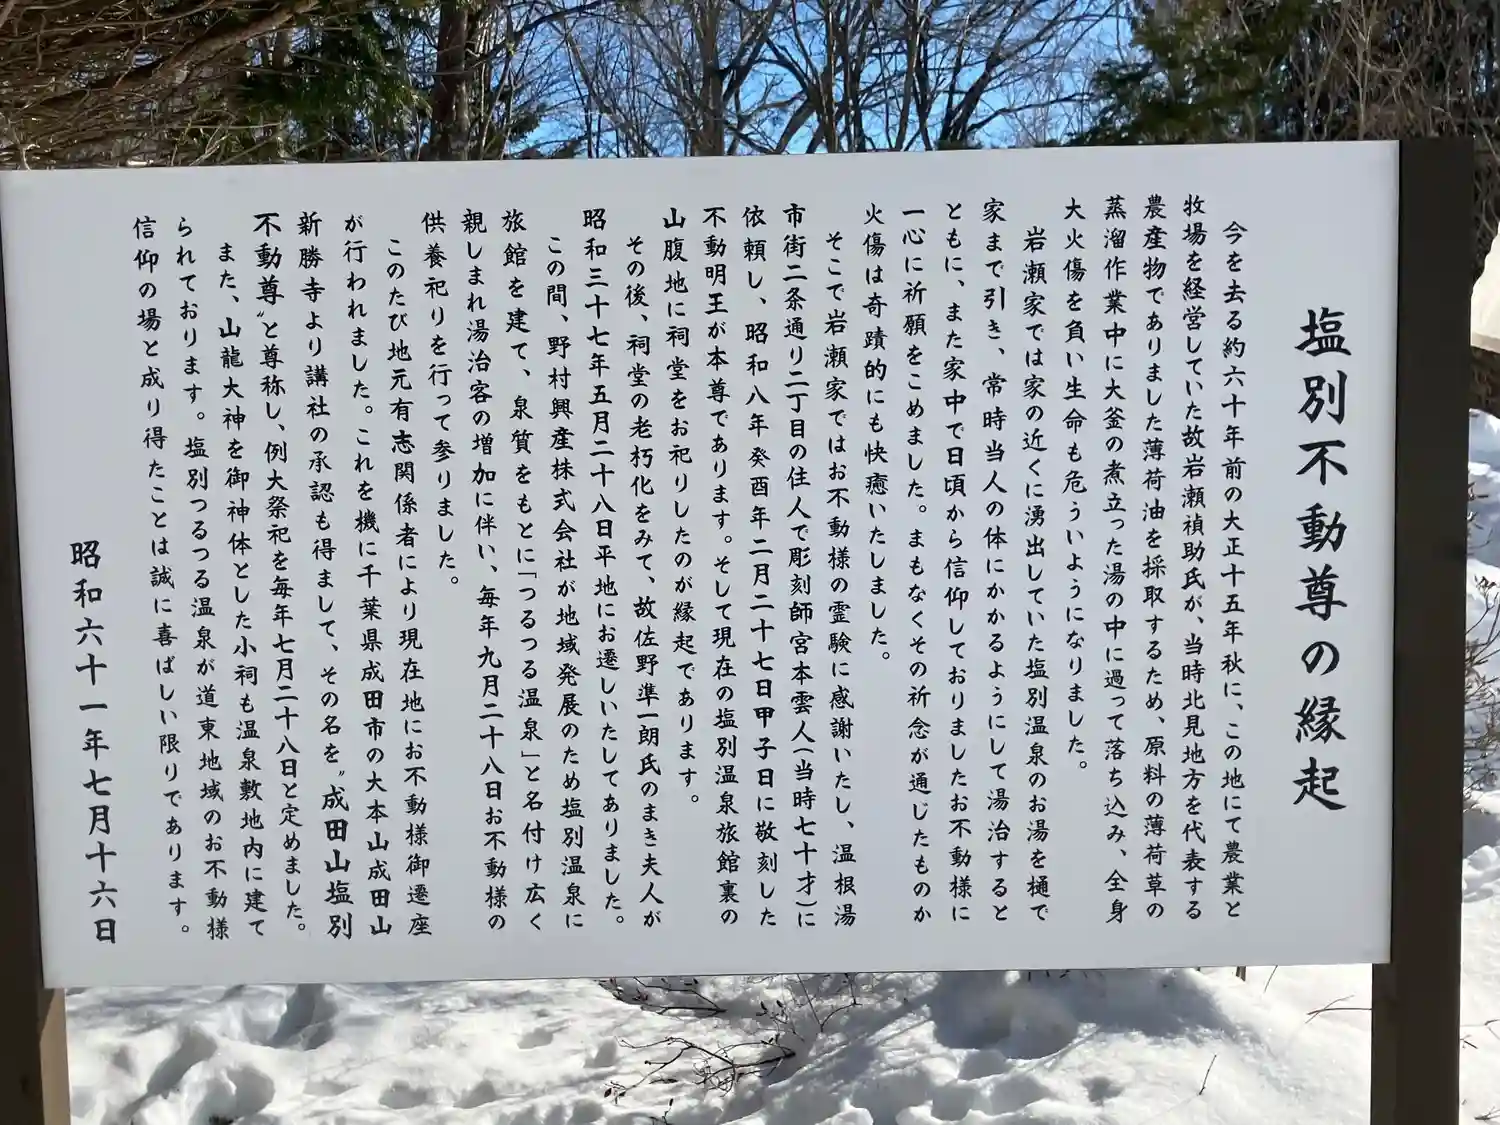 塩別不動尊の縁起
今を去る約六十年前の大正十五年秋に、この地にて農業と
牧場を経営していた故岩瀬禎助氏が、当時北見地方を代表する
農産物でありました薄荷油を採取するため、原料の薄荷草の
蒸溜作業中に大釜の煮立った湯の中に過って落ち込み、全身
大火傷を負い生命も危ういようになりました。
岩瀬家では家の近くに湧出していた塩別温泉のお湯を樋で
家まで引き、常時当人の体にかかるようにして湯治すると
ともに、また家中で日頃から信仰しておりましたお不動様に
一心に祈願をこめました。まもなくその祈念が通じたものか
火傷は奇蹟的にも快癒いたしました。
そこで岩瀬家ではお不動様の霊験に感謝いたし、温根湯
市街二条通り二丁目の住人で彫刻師宮本雲人(当時七十才)に
依頼し、昭和八年癸酉年二月二十七日甲子日に敬刻した
不動明王が本尊であります。そして現在の塩別温泉旅館裏の
山腹地に祠堂をお祀りしたのが縁起であります。
その後、祠堂の老朽化をみて、故佐野準一朗氏のまき夫人が
昭和三十七年五月二十八日平地にお遷しいたしてありました。
この間、野村興産株式会社が地域発展のため塩別温泉に
旅館を建て、泉質をもとに「つるつる温泉」と名付け広く
親しまれ湯治客の増加に伴い、毎年九月二十八日お不動様の
供養祀りを行って参りました。
このたび地元有志関係者により現在地にお不動様御遷座
が行われました。これを機に千葉県成田市の大本山成田山
新勝寺より講社の承認も得まして、その名を〝成田山塩別
不動尊〟と尊称し、例大祭祀を毎年七月二十八日と定めました。
また、山龍大神を御神体とした小祠も温泉敷地内に建て
られております。塩別つるつる温泉が道東地域のお不動様
信仰の場と成り得たことは誠に喜ばしい限りであります。
昭和六十一年七月十六日